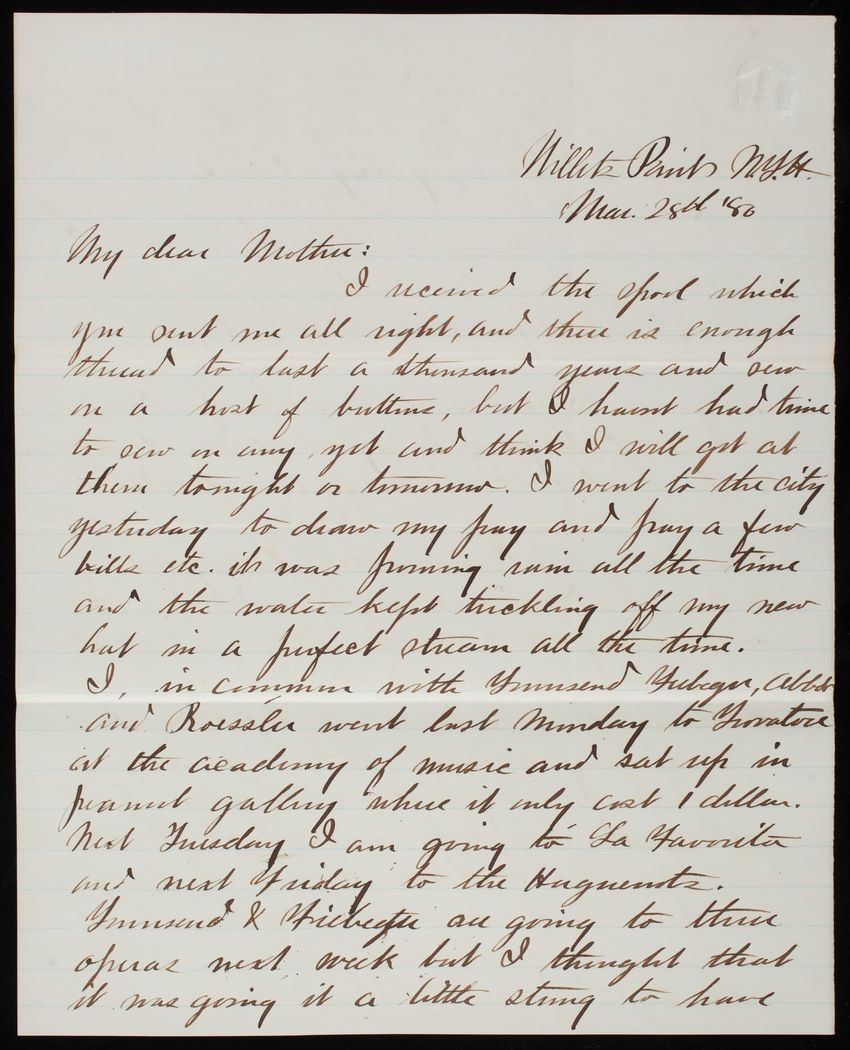 Willets Point N.Y.H.
Mar. 28th '80
My dear Mother:
I received the spool which
you sent me all right, and there is enough
thread to last a thousand years and sew
on a host of buttons, but I havnt had time
to sew on any yet and think I will get at
them tonight or tomorrow. I went to the city
yesterday to draw my pay and pay a few
bills etc. it was pouring rain all the time
and the water kept trickling off my new
hat in a perfect stream all the time.
I, in common with Townsend Fiebeger, Abbot
and Roessler went last Monday to Trovatore
at the academy of music and sat up in
peanut gallery where it only cost 1 dollar.
Next Tuesday I am going to La Favorita
and next Friday to the Huguenots.
Townsend & Fiebeger are going to three
operas next week but I thought that
it was going it a little strong to have